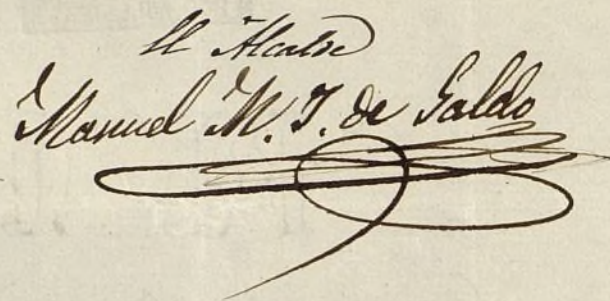 El Alcalde
Manuel M. J. de Galdo